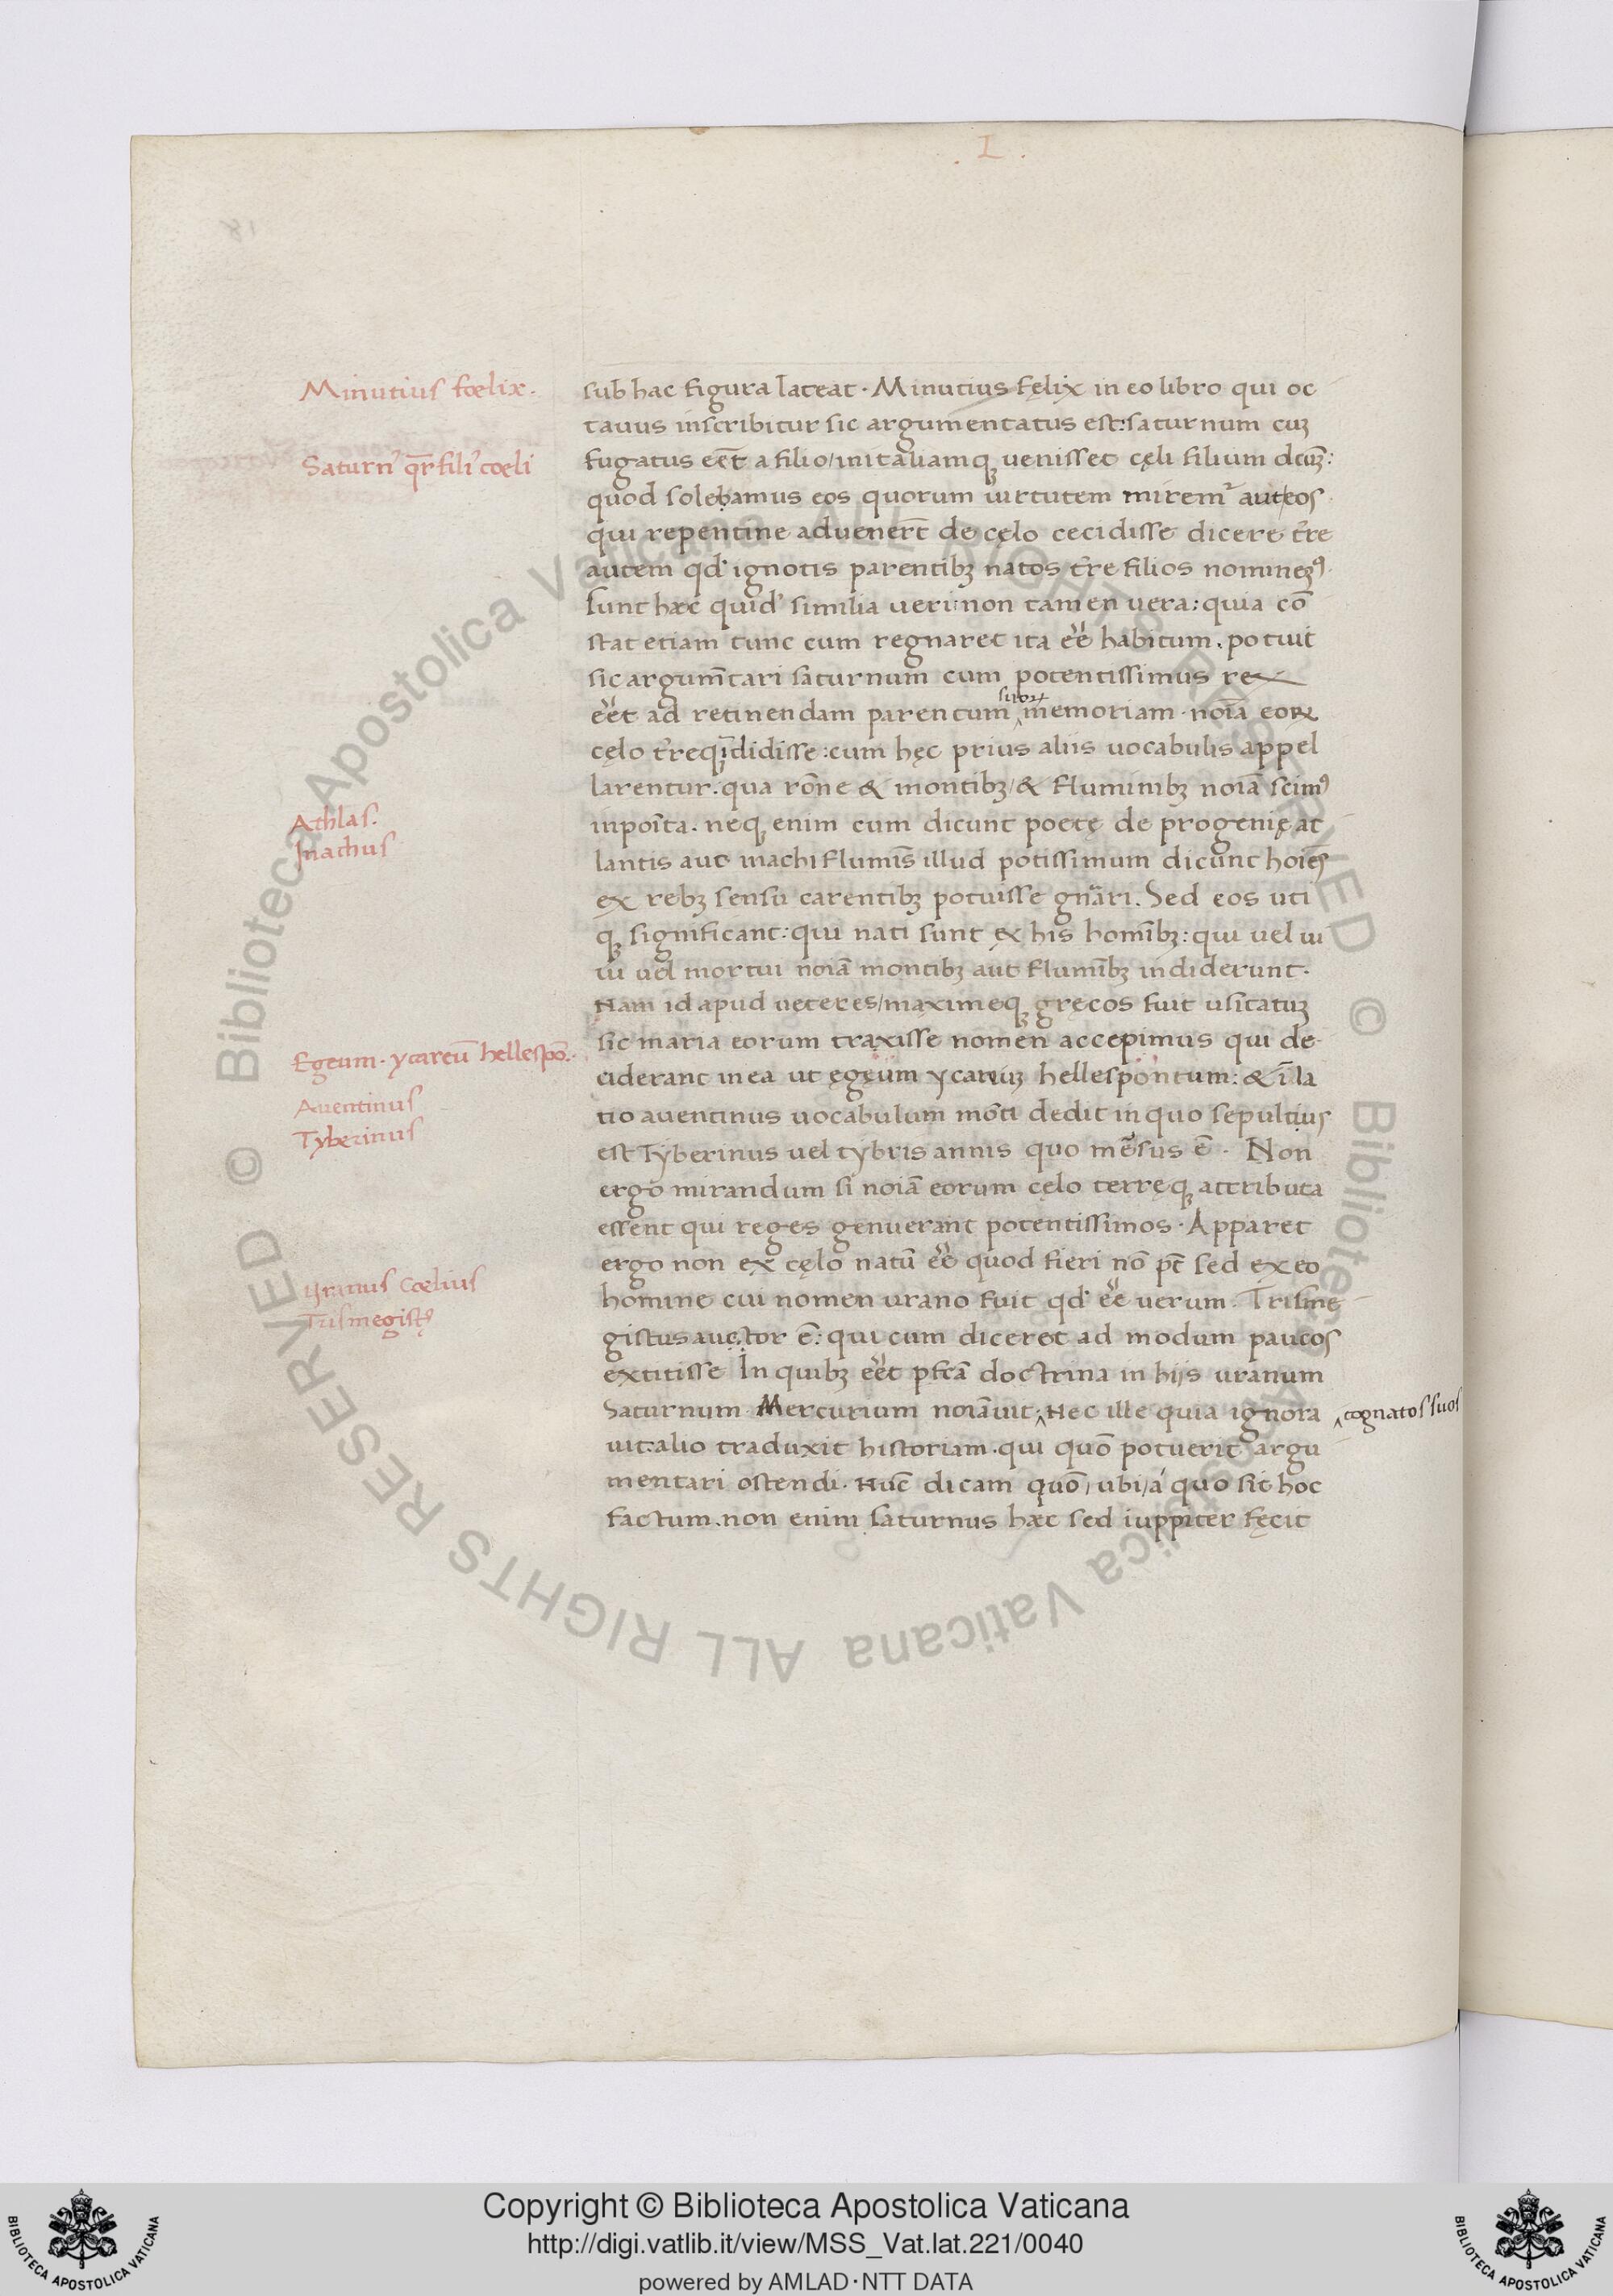 . I .
Minutius fœlix.
Saturn⁹ qr̄ fili⁹ cœli
Athlas.
Inachus
Egeum. ycareū hellespō.
Auentinus
Tyberinus
Vranus Cœlius
Trismegist⁹
sub hac figura lateat. Minutius fęlix in eo libro qui oc
tauus inscribitur sic argumentatus est: saturnum cuꝫ
fugatus eēt a filio/in italiamqꝫ uenisset cęli filium dcūꝫ:
quod solebamus eos quorum uirtutem miremr̃ aut eos
qui repentine aduenerc̄t de cęlo cecidisse dicere tr̄re
autem qd̓ ignotis parentibꝫ natos tr̄re filios nomineꝫ⁹.
sunt hæc quid̓ similia ueri: non tamen vera: quia cō
stat etiam tunc cum regnaret ita eẽ habitum. potuit
sic argum̄tari saturnum cum potentissimus rex
eẽt ad retinendam parentum ‸suoꝝ memoriam. noīa eoꝝ
cęlo tr̄reqꝫ īdidisse: cum hęc prius aliis uocabulis appel
larentur. qua rōne & montibꝫ/& fluminibꝫ noīa scim⁹
inpoīta. neqꝫ enim cum dicunt poetę de progenię at
lantis aut inachi flumīs illud potissimum dicunt hoīes
ex rebꝫ sensu carentibꝫ potuisse gn̄ari. Sed eos uti
qꝫ significant: qui nati sunt ex his homībꝫ: qui uel ui
ui uel mortui noīa montibꝫ aut flumībꝫ indiderunt.
Nam id apud ueteres/maximeqꝫ gręcos fuit usitatuꝫ
sic maria eorum traxisse nomen accepimus qui de
ciderant in ea ut ęgęum ycariuꝫ hellespontum: & ī la
tio auentinus uocabulum mōti dedit in quo sepultus
est Tyberinus uel tybris annis quo mēsus ē. Non
ergo mirandum si noīa eorum cęlo terręqꝫ attributa
essent qui reges genuerant potentissimos. Apparet
ergo non ex cęlo natū eẽ quod fieri nō pt̄ sed ex eo
homine cui nomen urano fuit qd̓ eẽ uerum. Trisme
gistus auctor ē: qui cum diceret ad modum paucos
extitisse In quibꝫ eẽt pfcā doctrina in hijs uranum
Saturnum Mercurium noīauit. ‸ Hec ille quia ignora ‸ cognatos suos
uit: alio traduxit historiam. qui quō potuerit argu
mentari ostendi. Nūc dicam quō/ubi/a quo sit hoc
factum. non enim saturnus hæc sed iuppiter fęcit
Copyright © Biblioteca Apostolica Vaticana
http://digi.vatlib.it/view/MSS_Vat.lat.221/0040
powered by AMLAD · NTT DATA
BIBLIOTECA APOSTOLICA VATICANA
BIBLIOTECA APOSTOLICA VATICANA
© Biblioteca Apostolica Vaticana ALL RIGHTS RESERVED © Biblioteca Apostolica Vaticana ALL RIGHTS RESERVED